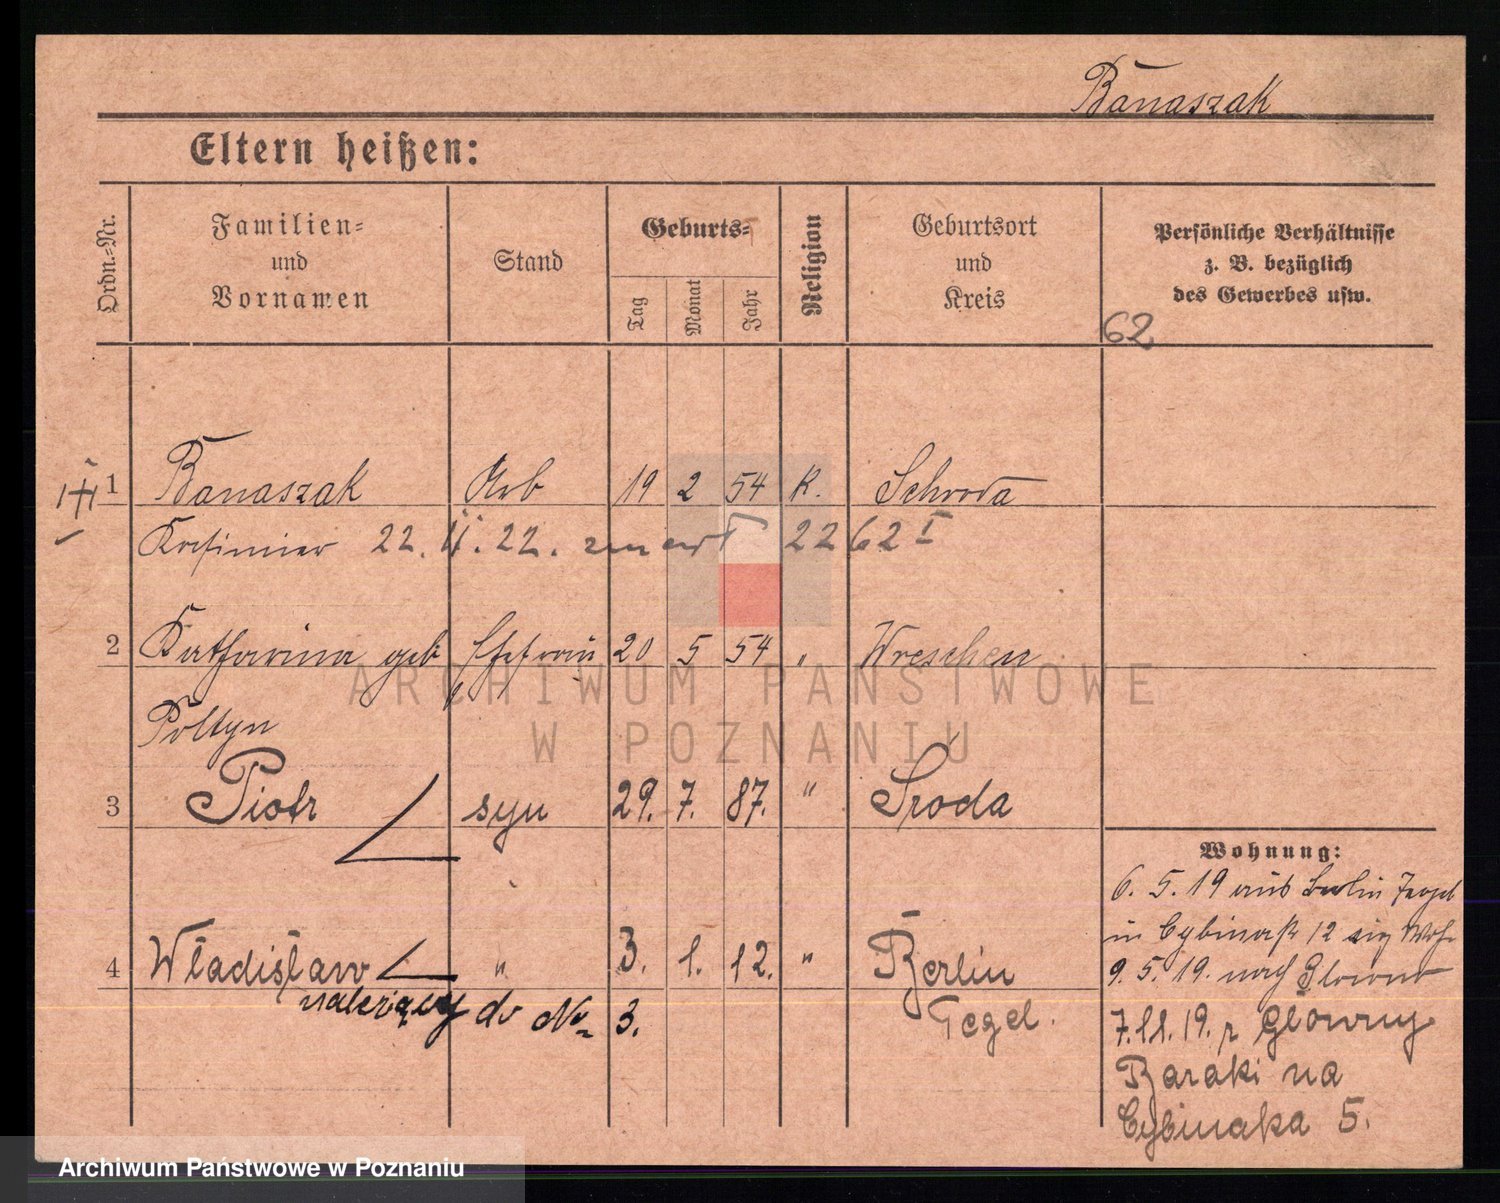 Banaszak
Eltern heißen:
Ordn.-Nr.
Familien-
und
Vornamen
Stand
Geburts-
Tag
Monat
Jahr
Religion
Geburtsort
und
Kreis
Persönliche Verhältnisse
z. B. bezüglich
des Gewerbes usw.
62
1 Banaszak Arb 19 2 54 K. Schroda
Kasimier 22. II. 22. zmarł 2262 I
2 Katharina geb Ehefrau 20 5 54 " Wreschen
Poltyn
3 Piotr syn 29. 7. 87. " Środa
4 Władisław " 3. 1. 12. " Berlin
należący do No 3. Tegel.
Wohnung:
6. 5. 19 aus Berlin Tegel
in Cybinastr 12
9. 5. 19. nach Glowno
7. 11. 19. z Główny
Baraki na
Cybinaka 5.
ARCHIWUM PAŃSTWOWE
W POZNANIU
Archiwum Państwowe w Poznaniu